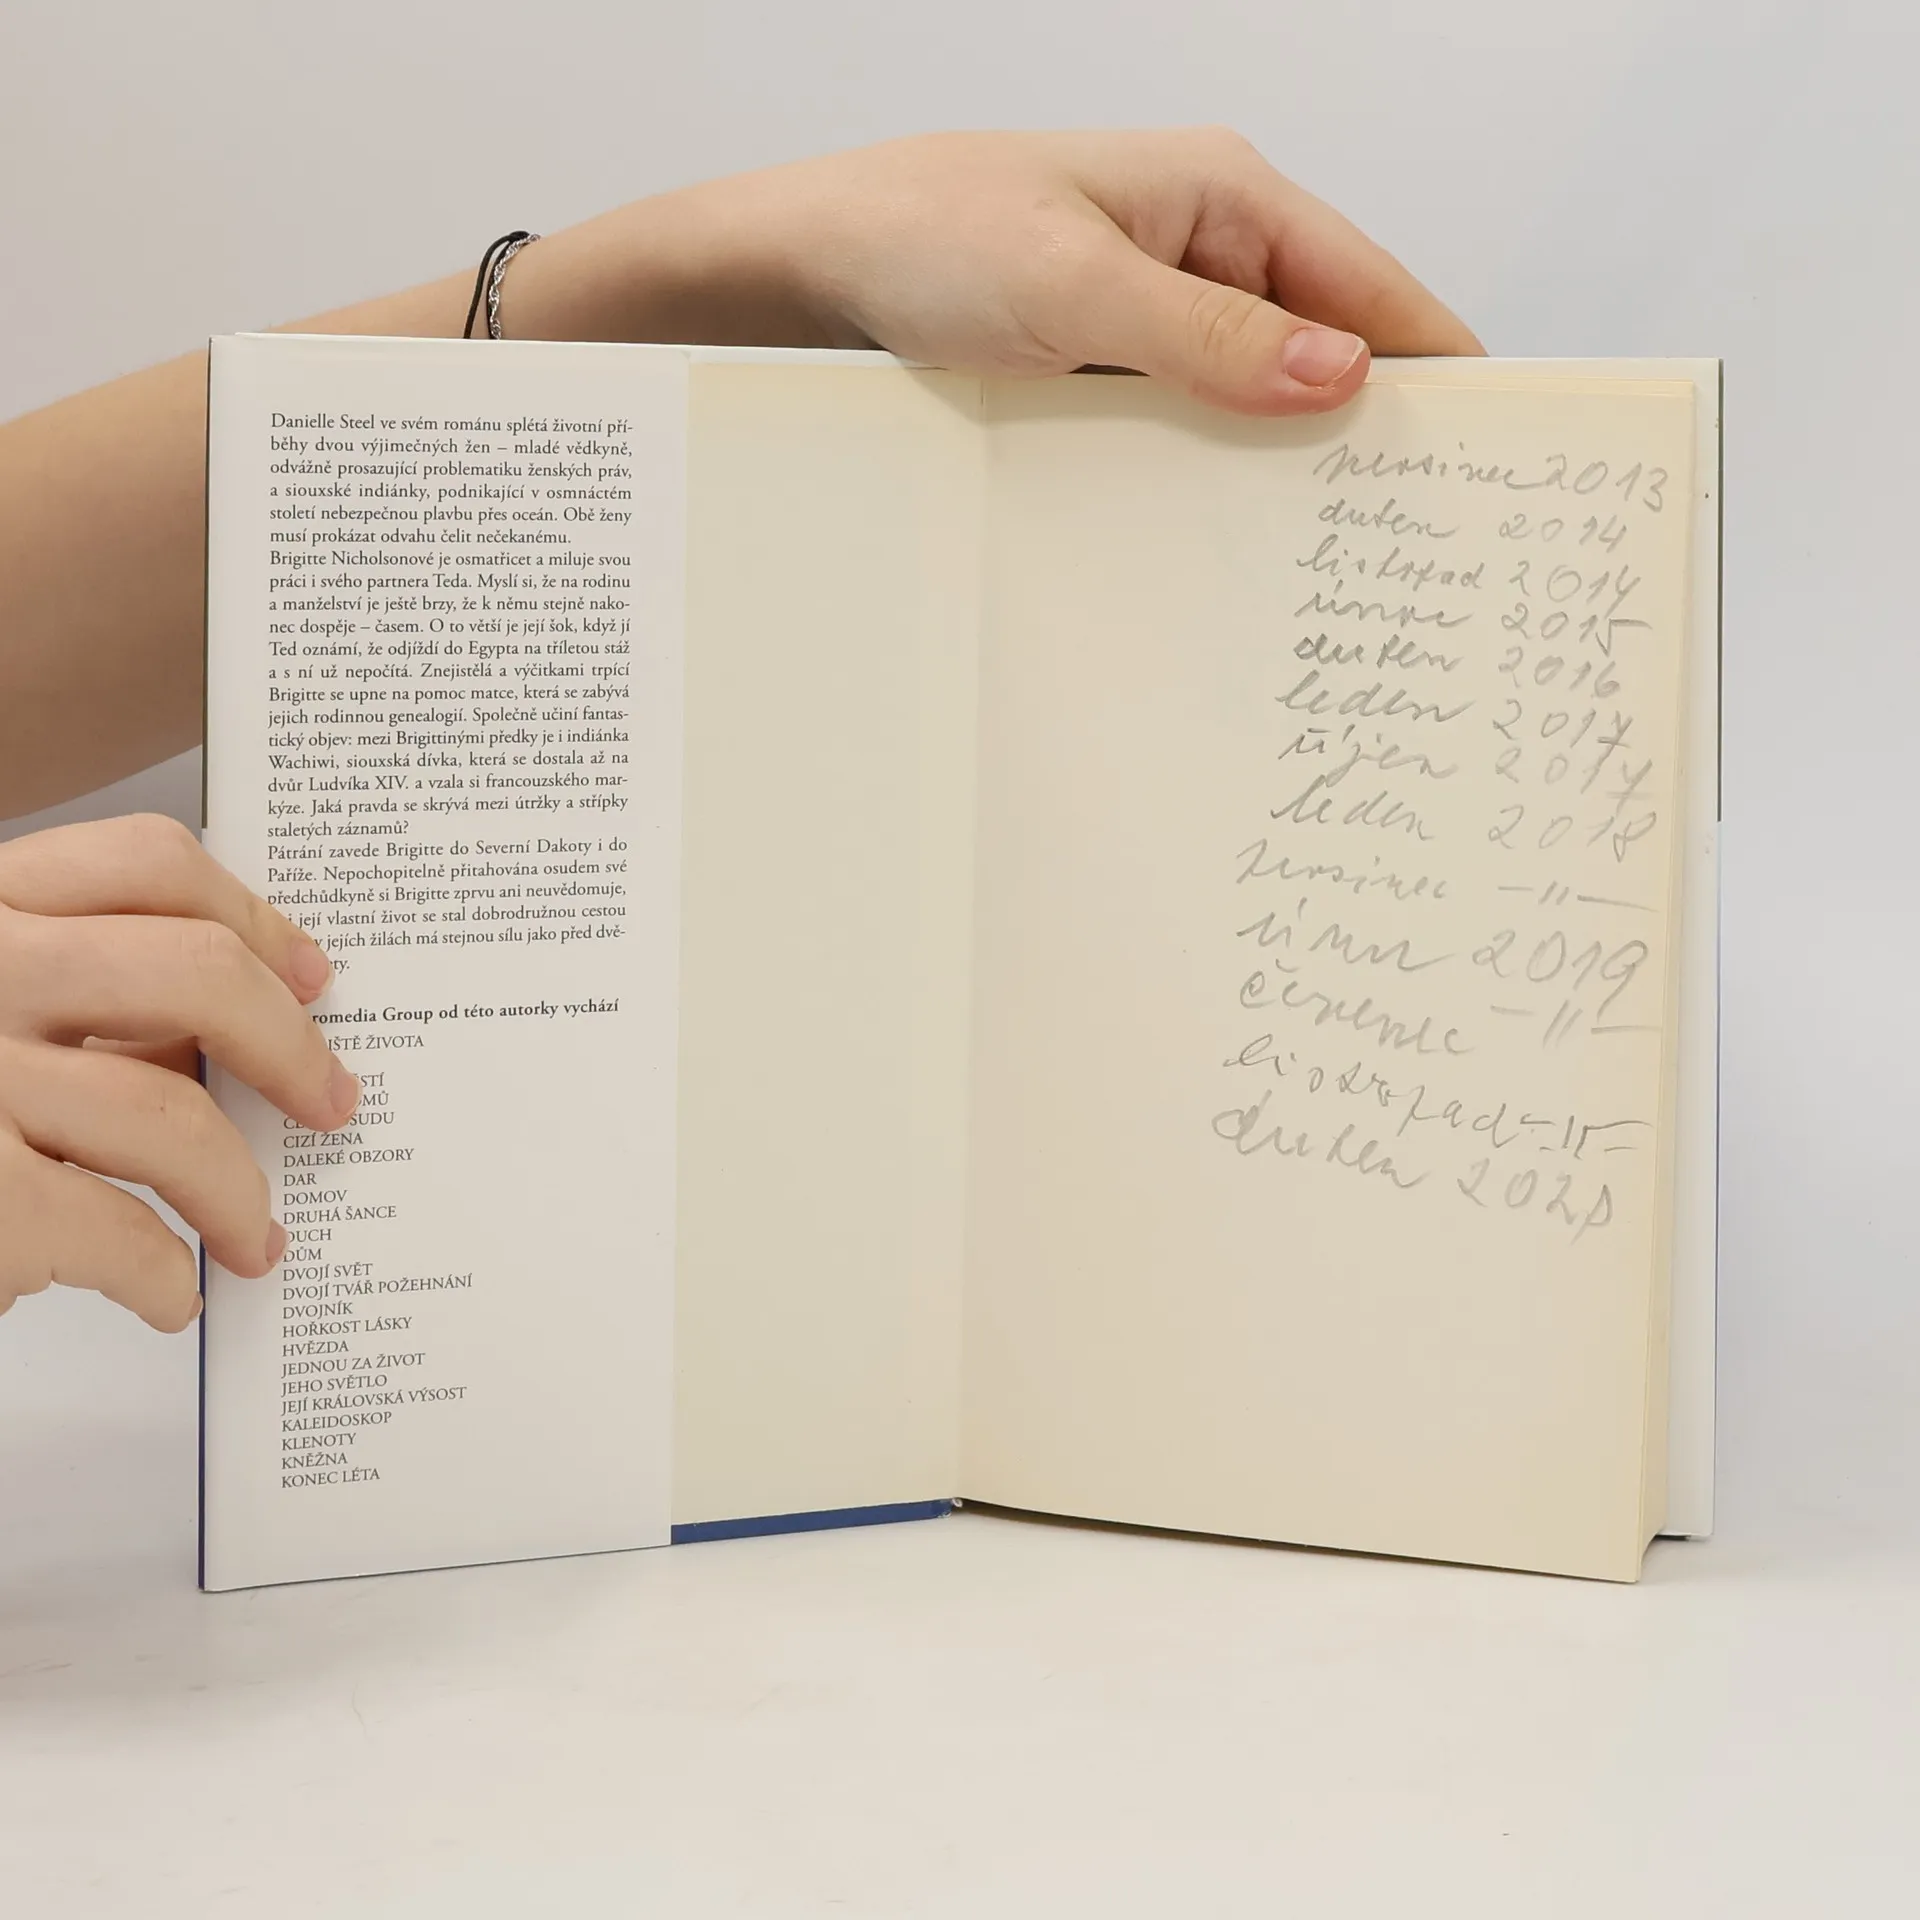 Danielle Steel ve svém románu splétá životní pří-
běhy dvou výjimečných žen – mladé vědkyně,
odvážně prosazující problematiku ženských práv,
a siouxské indiánky, podnikající v osmnáctém
století nebezpečnou plavbu přes oceán. Obě ženy
musí prokázat odvahu čelit nečekanému.
Brigitte Nicholsonové je osmatřicet a miluje svou
práci i svého partnera Teda. Myslí si, že na rodinu
a manželství je ještě brzy, že k němu stejně nako-
nec dospěje – časem. O to větší je její šok, když jí
Ted oznámí, že odjíždí do Egypta na tříletou stáž
a s ní už nepočítá. Znejistělá a výčitkami trpící
Brigitte se upne na pomoc matce, která se zabývá
jejich rodinnou genealogií. Společně učiní fantas-
tický objev: mezi Brigittinými předky je i indiánka
Wachiwi, siouxská dívka, která se dostala až na
dvůr Ludvíka XIV. a vzala si francouzského mar-
kýze. Jaká pravda se skrývá mezi útržky a střípky
staletých záznamů?
Pátrání zavede Brigitte do Severní Dakoty i do
Paříže. Nepochopitelně přitahována osudem své
předchůdkyně si Brigitte zprvu ani neuvědomuje,
i její vlastní život se stal dobrodružnou cestou
v jejích žilách má stejnou sílu jako před dvě-
ety.
romedia Group od této autorky vychází
IŠTĚ ŽIVOTA
ĚSTÍ
OMŮ
SUDU
CIZÍ ŽENA
DALEKÉ OBZORY
DAR
DOMOV
DRUHÁ ŠANCE
DUCH
DŮM
DVOJÍ SVĚT
DVOJÍ TVÁŘ POŽEHNÁNÍ
DVOJNÍK
HOŘKOST LÁSKY
HVĚZDA
JEDNOU ZA ŽIVOT
JEHO SVĚTLO
JEJÍ KRÁLOVSKÁ VÝSOST
KALEIDOSKOP
KLENOTY
KNĚŽNA
KONEC LÉTA
prosinec 2013
duben 2014
listopad 2014
únor 2015
duben 2016
leden 2017
říjen 2017
leden 2018
prosinec —II—
únor 2019
červenec —II—
listopad —II—
duben 2020